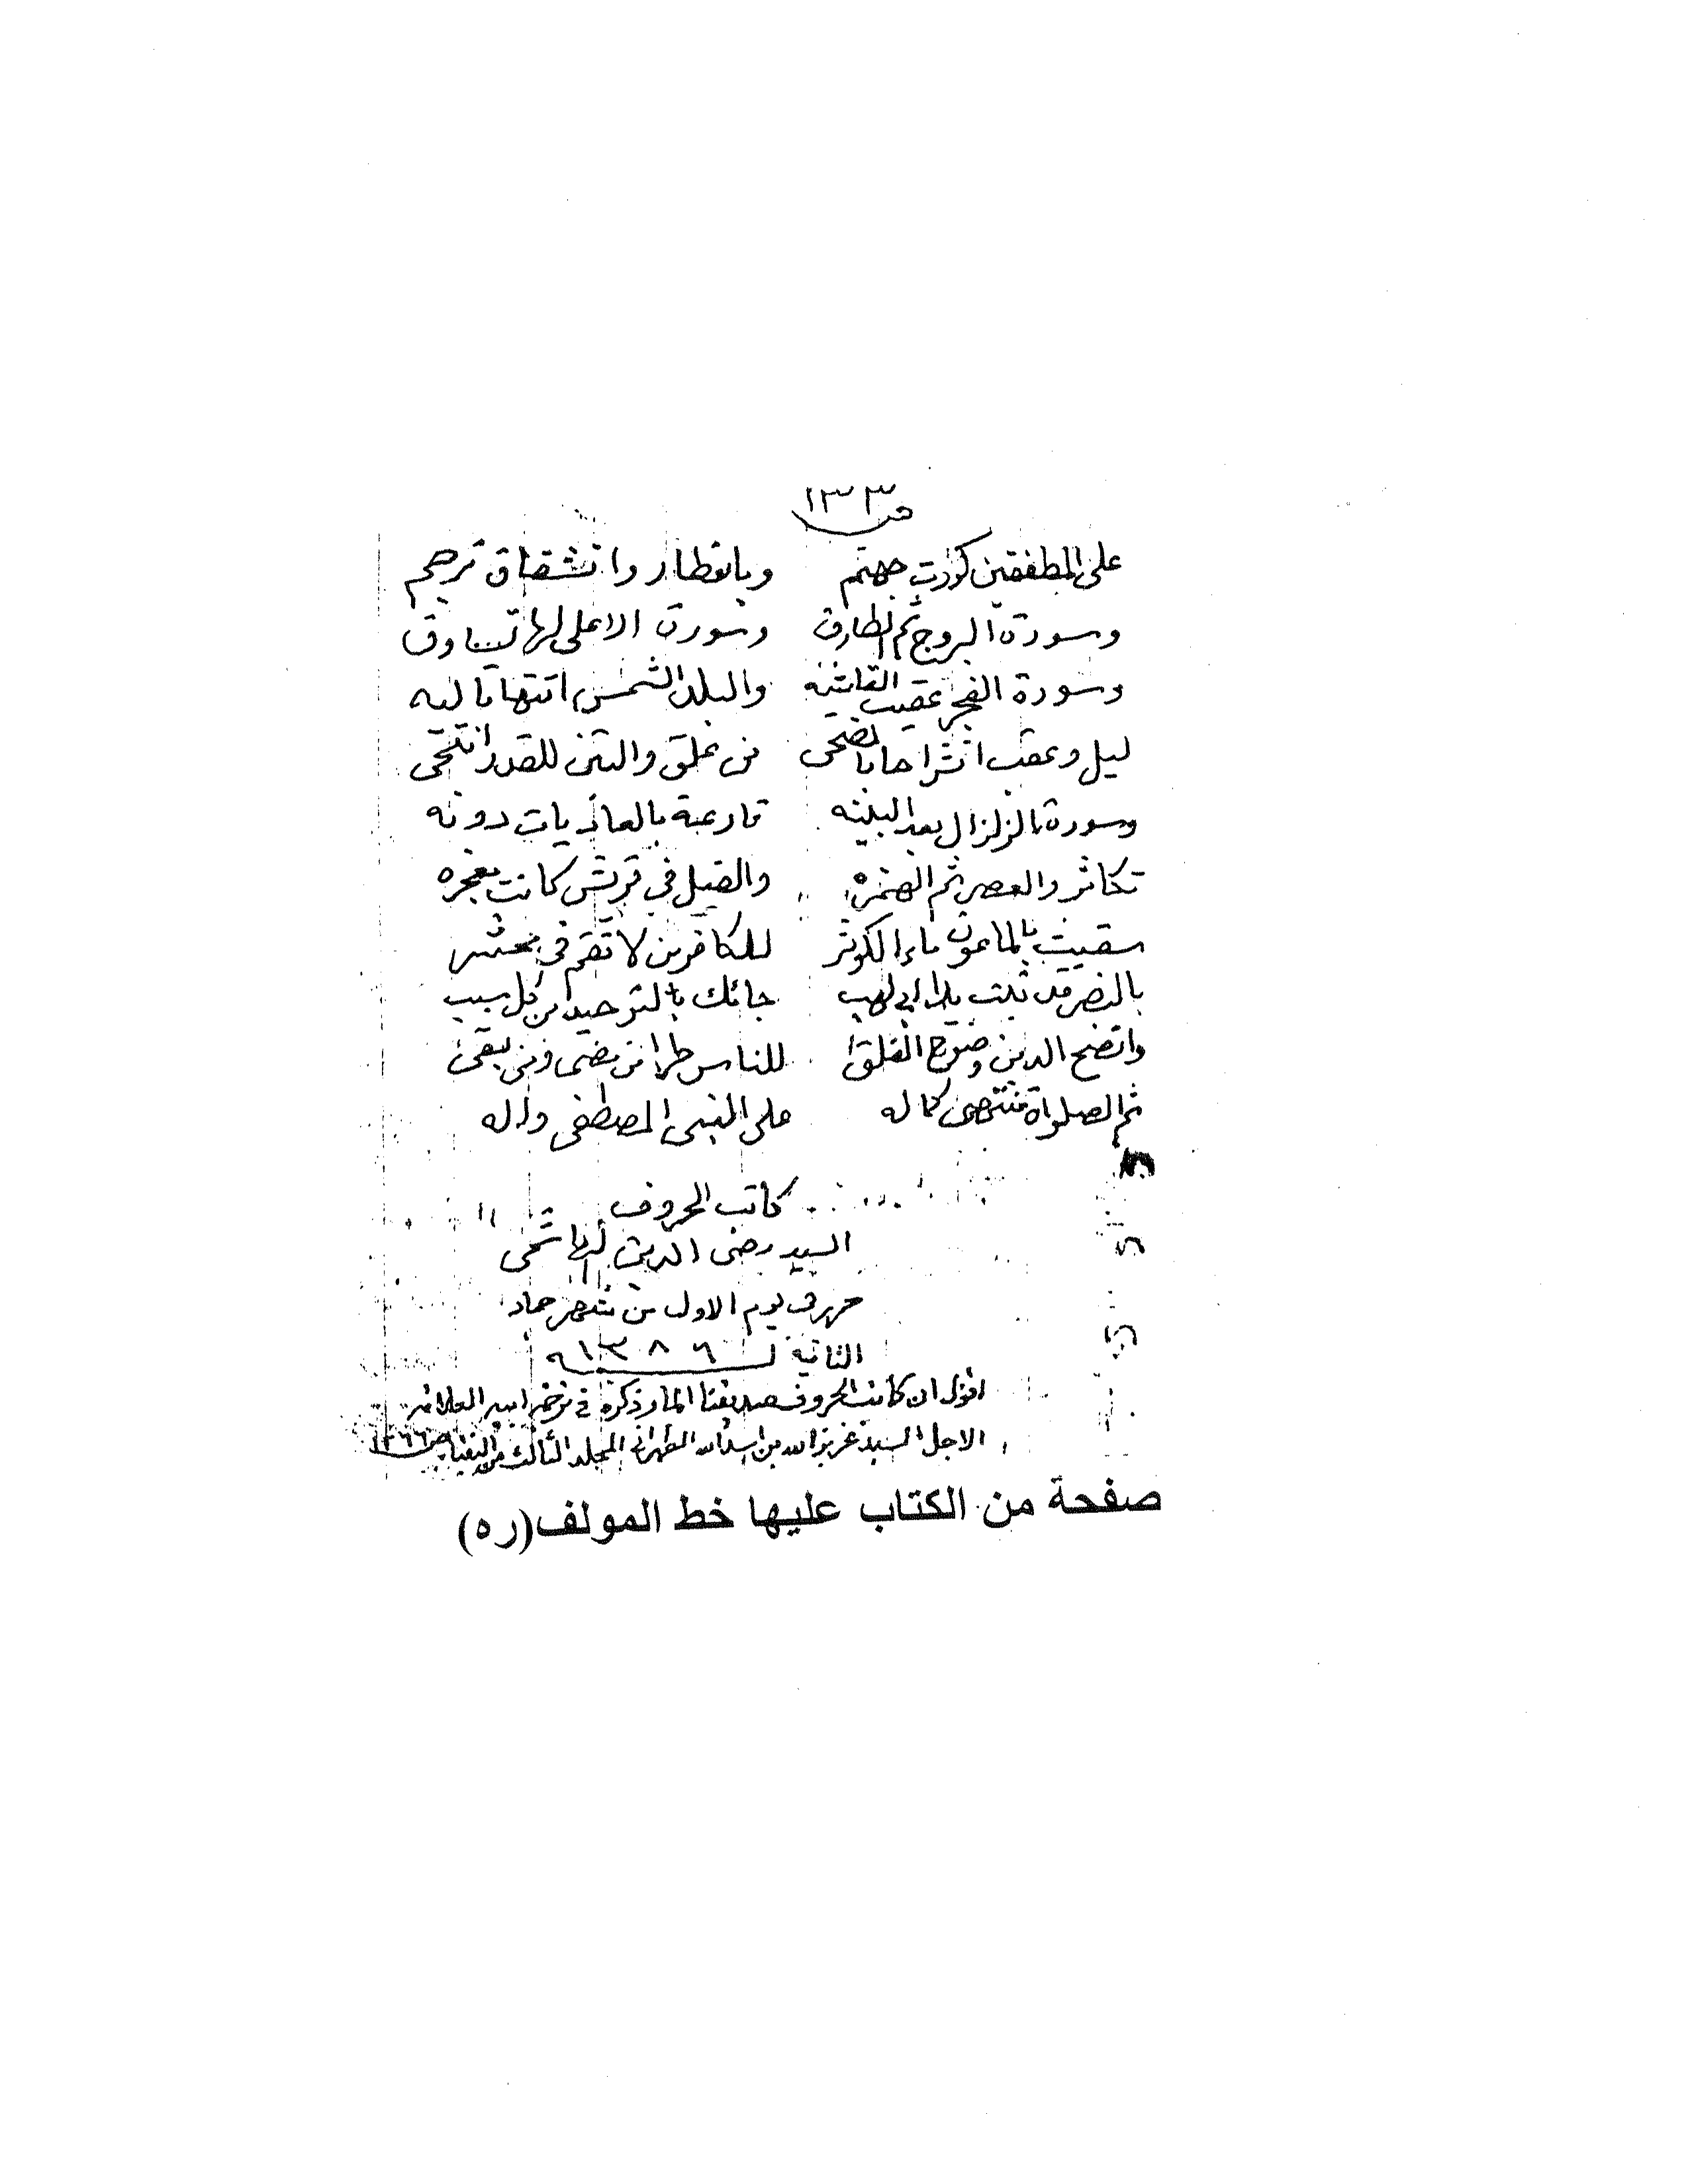 ص ١٣٣
على المطففين كورت جهنم وبانفطار وانشقاق ترجم
وسورة البروج ثم الطارق وسورة الاعلى لها تساوق
وسورة الفجر عقيب الغاشيه والبلد الشمس انتها تاليه
ليل وعقب انشراحا بالضحى من علق والتين للقدر انتحى
وسورة الزلزال بعد البينه قارعة بالعاديات دونه
تكاثر والعصر ثم الهمزه والفيل في قريش كانت معجزه
سقيت بالماعون ماء الكوثر للكافرين لا تقم في محشر
بالنصر قد تبت يدا ابي لهب جائك بالتوحيد من كل سبب
واتضح الدين وضوح الفلق للناس طرا من مضى ومن بقى
ثم الصلواة منتهى كماله على النبي المصطفى واله
كاتب الحروف
السيد رضى الدين الهاشمى
حرر في يوم الاول من شهر جماد
الثانيه لسـ ١٣٨٦ـه
اقول ان كاتب الحروف صديقنا المار ذكره في ترجمة ابيه العلامة
الاجل السيد عزيز الله بن اسدالله الطهراني المجلد الثالث من النقباء ص ١٢٦٦
صفحة من الكتاب عليها خط المولف(ره)